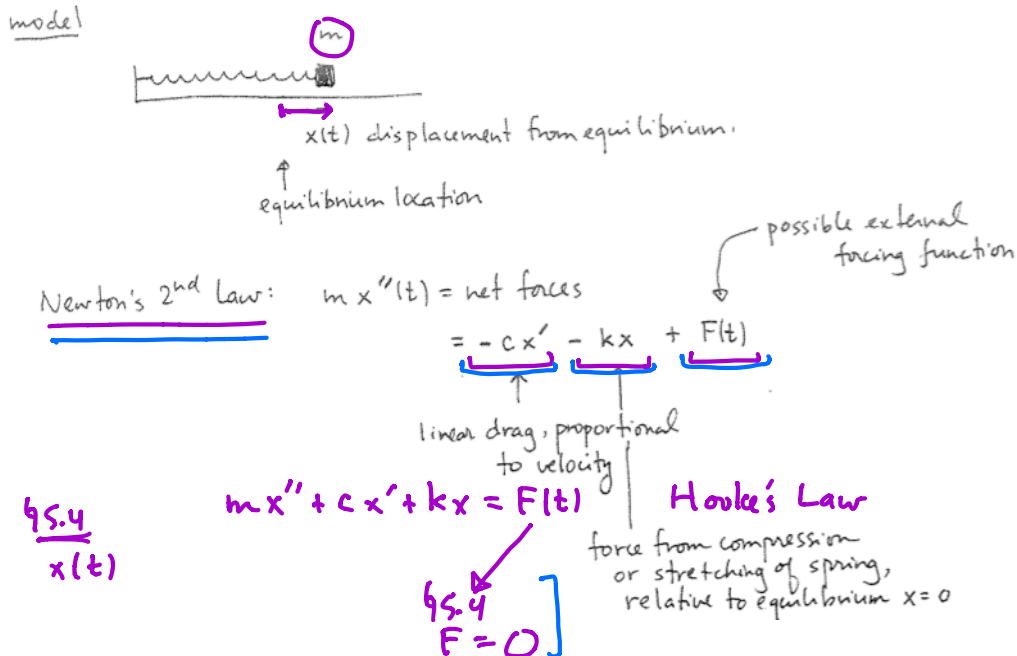 model
m
x(t) displacement from equilibrium.
equilibrium location
possible external
forcing function
Newton's 2nd Law: m x''(t) = net forces
= - c x' - kx + F(t)
linear drag, proportional
to velocity
§5.4
x(t)
m x'' + c x' + kx = F(t)
Hooke's Law
force from compression
or stretching of spring,
relative to equilibrium x=0
§5.4
F = 0